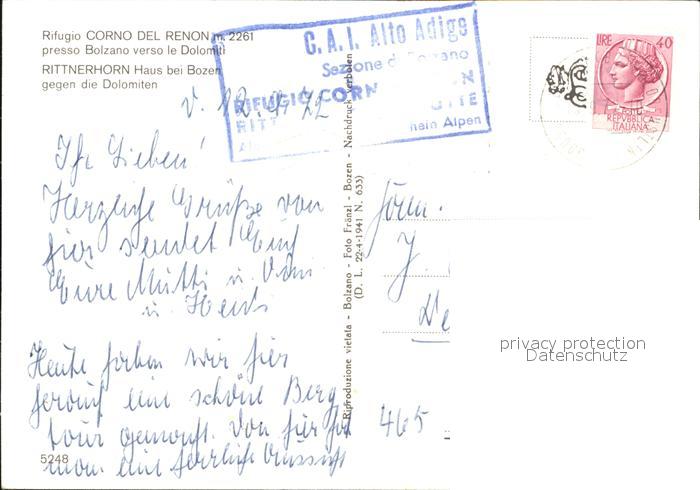 Rifugio CORNO DEL RENON m. 2261
presso Bolzano verso le Dolomiti
RITTNERHORN Haus bei Bozen
gegen die Dolomiten
C.A.I. Alto Adige
Sezione di Bolzano
RIFUGIO CORN N
RITT GITE
nein Alpen
LIRE 40
POSTE
REPVBBLICA
ITALIANA
v. 12.9.72
Ihr Lieben!
Herzliche Grüße von
hier sendet Euch
Eure Mutti u. Vati
u. Heidi
Heute haben wir hier
herauf eine schöne Berg
tour gemacht. Von hier hat
man eine herrliche Aussicht
Riproduzione vietata - Bolzano - Foto Fränzl - Bozen - Nachdruck verboten
(D. L. 22-4-1941 N. 633)
Fam.
J.
We
465
5248
privacy protection
Datenschutz